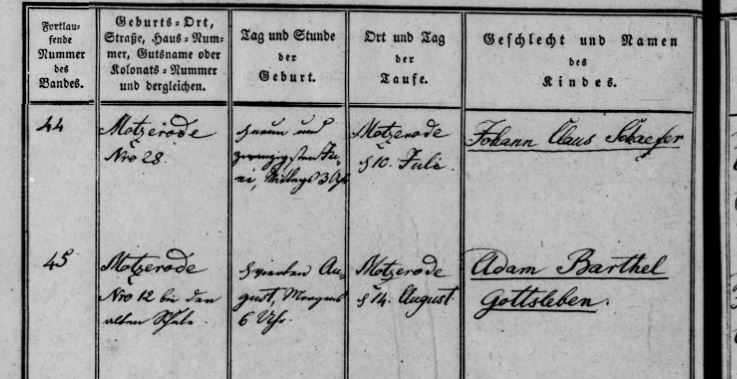 Fortlau-
fende
Nummer
des
Bandes.
Geburts-Ort,
Straße, Haus-Num-
mer, Gutsname oder
Kolonats-Nummer
und dergleichen.
Tag und Stunde
der
Geburt.
Ort und Tag
der
Taufe.
Geschlecht und Namen
des
Kindes.
44
Motzerode
Nro 28.
neun und
zwanzigsten Ju-
ni, Mittags 3 Uhr
Motzerode
10. Juli
Johann Claus Schaefer
45
Motzerode
Nro 12 bei der
alten Schule.
vierten Au-
gust, Morgens
6 Uhr.
Motzerode
14. August.
Adam Barthel
Gottsleben.